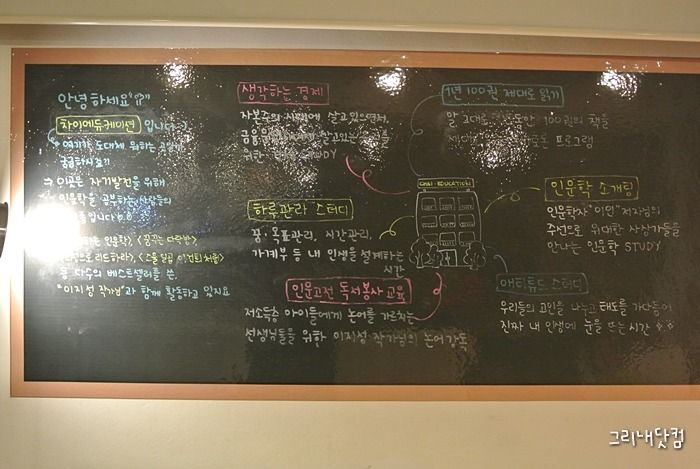 안녕하세요^^
차이에듀케이션 입니다 :)
여기가 도대체 뭐하는 곳일까
궁금하시죠?!
이곳은 자기발전을 위해
인문학을 공부하는 사람들의
입니다
인문학>, <꿈꾸는 다락방>
리드하라>, <스물일곱 이건희처럼>
등 다수의 베스트셀러를 쓴,
"이지성 작가님"과 함께 활동하고 있지요
생각하는 경제
자본주의 시대에 살고있으면서,
살고있는
위한
1년 100권 제대로 읽기
말 그대로 100권의 책을
프로그램
CHAI·EDUCATION
하루관리 스터디
꿈·목표관리, 시간관리,
가계부 등 내 인생을 설계하는
시간
인문학 소개팅
인문학자 "이인" 저자님의
주선으로 위대한 사상가들을
만나는 인문학 STUDY
인문고전 독서봉사 교육
저소득층 아이들에게 논어를 가르치는
선생님들을 위한 이지성 작가님의 논어강독
애티튜드 스터디
우리들의 고민을 나누고 태도를 가다듬어
진짜 내 인생에 눈을 뜨는 시간
그리내닷컴